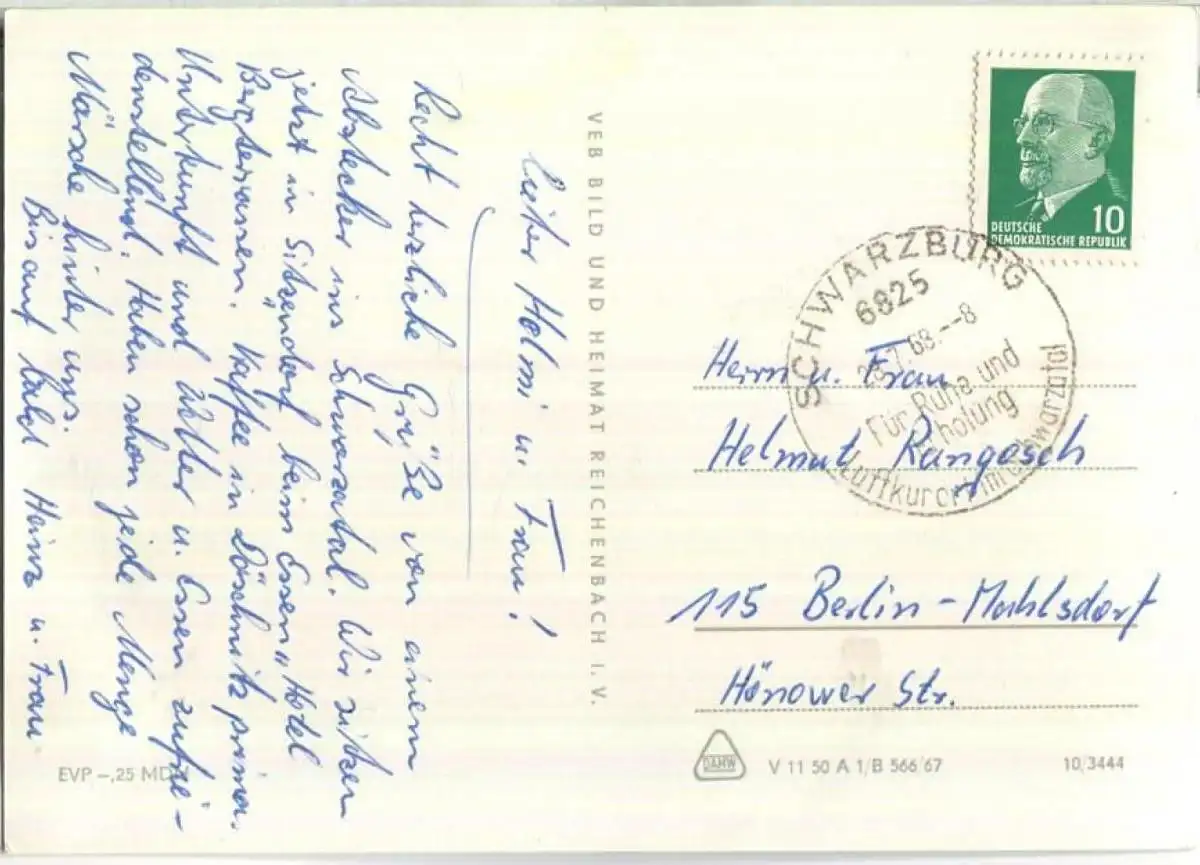 Lieber Helmi u. Frau!
Recht herzliche Grüße von einem
Abstecker ins Schwarzatal. Wir sitzen
jetzt in Sitzendorf beim Essen „Hotel
Bergterrassen. Kaffee in Döschnitz prima.
Unterkunft und Wetter u. Essen zufrie-
denstellend. Haben schon jede Menge
Märsche hinter uns.
Bis auf bald Heinz u. Frau
VEB BILD UND HEIMAT REICHENBACH I. V.
EVP –,25 MDN
DEUTSCHE
DEMOKRATISCHE REPUBLIK
10
SCHWARZBURG
6825
.7.68.--8
Für Ruhe und
Erholung
Luftkurort im Schwarzatal
Herrn u. Frau
Helmut Rangosch
115 Berlin-Mahlsdorf
Hönower Str.
DAHW
V 11 50 A 1/B 566/67
10/3444